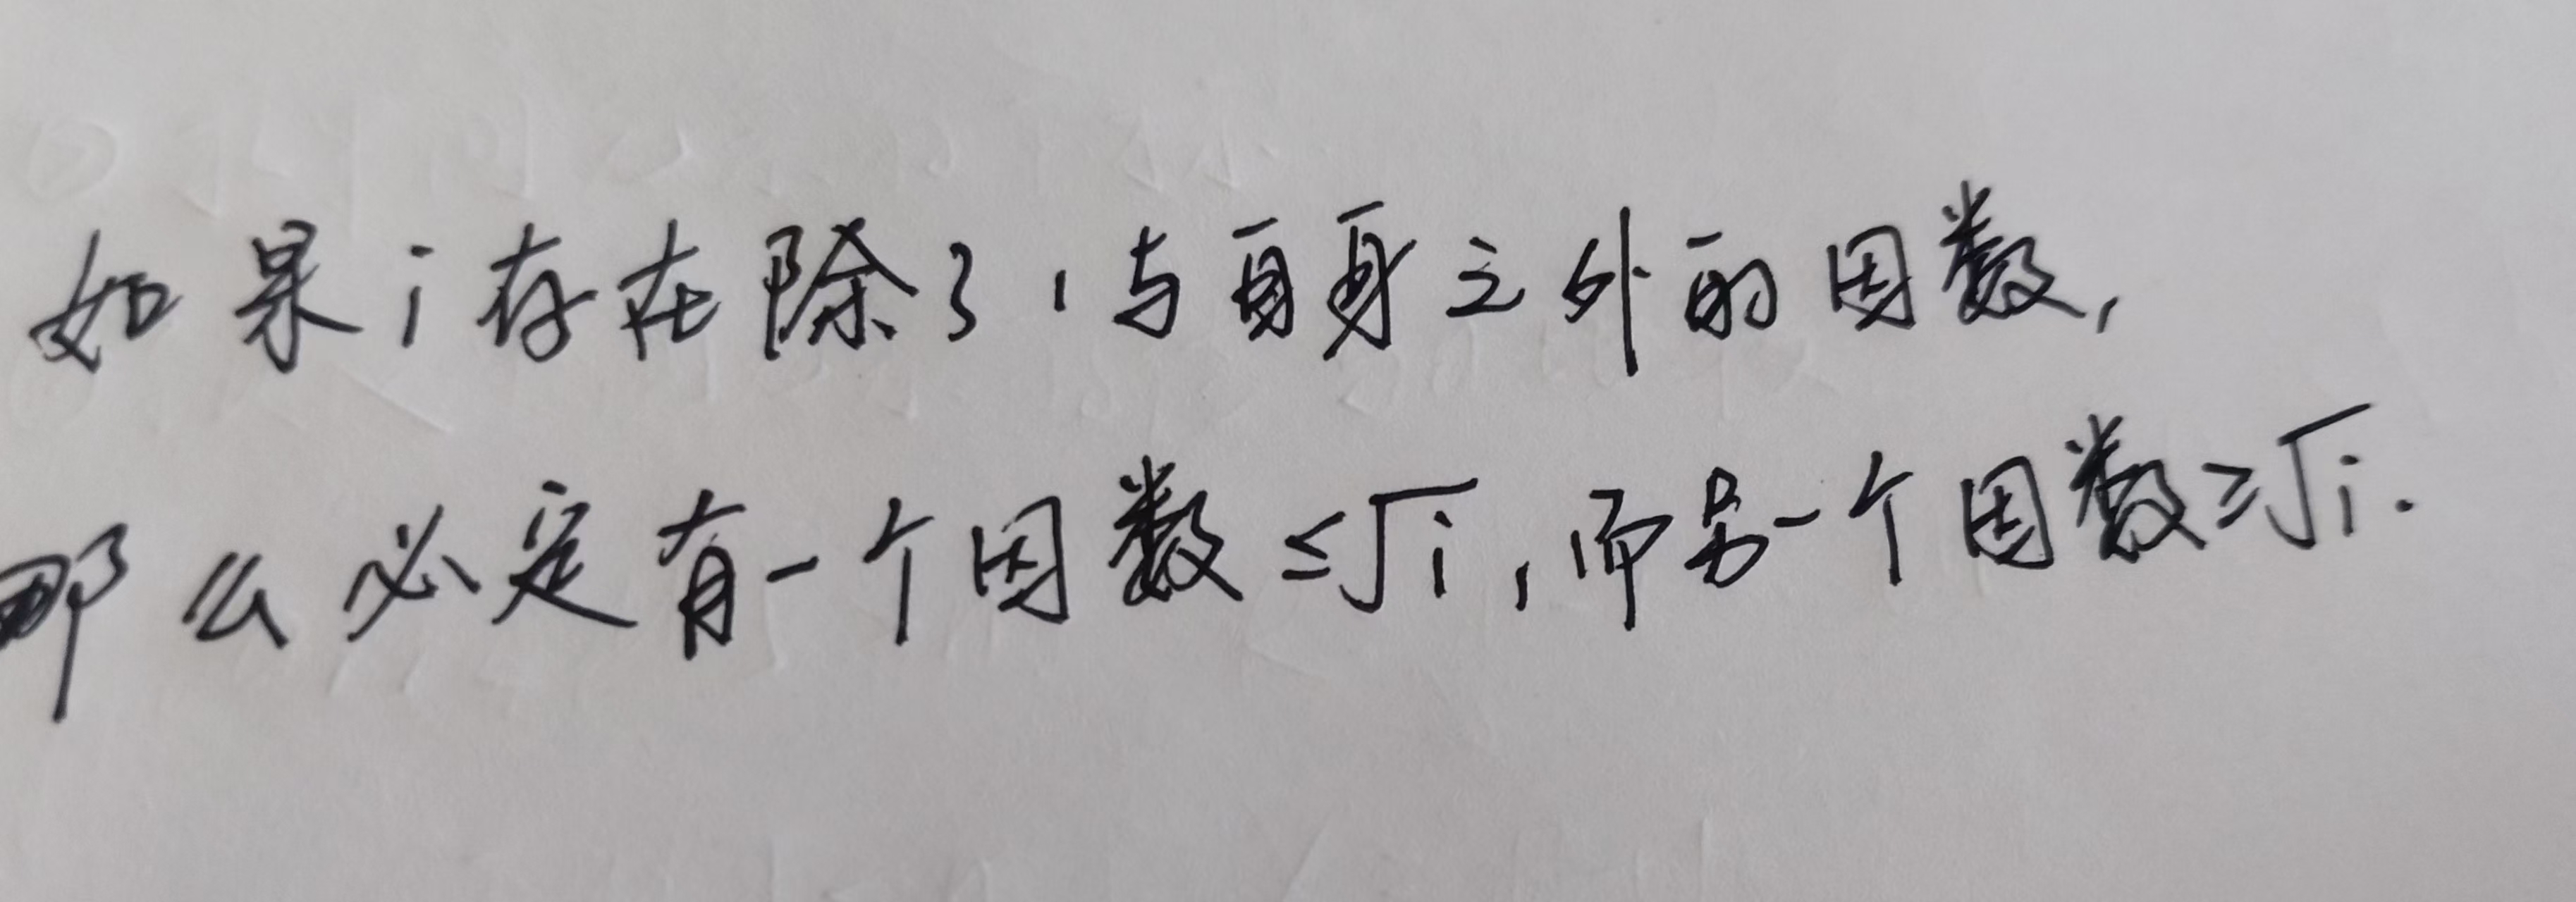 如果i存在除了1与自身之外的因数,
那么必定有一个因数≤√i,而另一个因数≥√i.